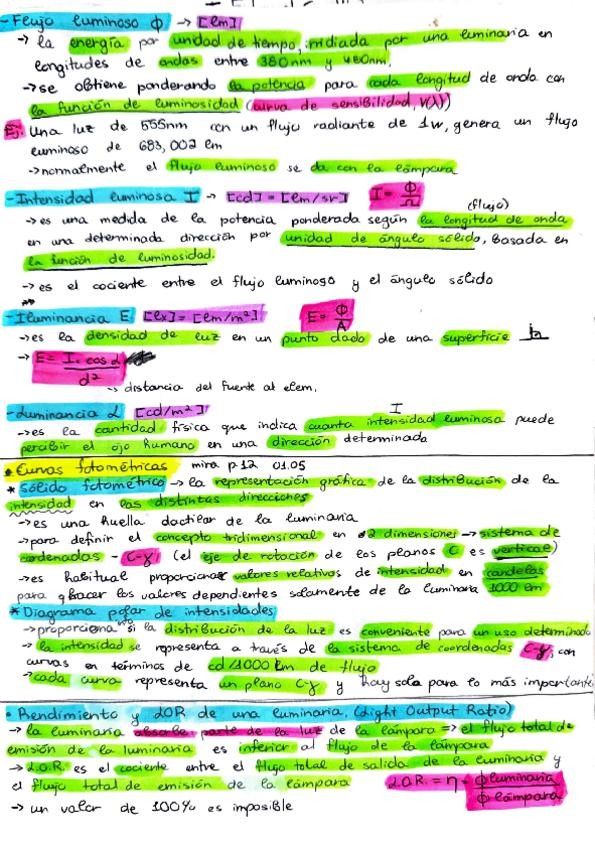 - Flujo luminoso ϕ → [lm]
→ la energía por unidad de tiempo, irridiada por una luminaria en
longitudes de ondas entre 380nm y 480nm,
→ se obtiene ponderando la potencia para cada longitud de onda con
la función de luminosidad (curva de sensibilidad, V(λ))
Ej: Una luz de 555nm con un flujo radiante de 1w, genera un flujo
luminoso de 683,002 lm
→ normalmente el flujo luminoso se da con la lámpara
- Intensidad luminosa I → [cd] = [lm/sr] I = ϕ/Ω
(flujo)
→ es una medida de la potencia ponderada según la longitud de onda
en una determinada dirección por unidad de ángulo sólido, basada en
la función de luminosidad.
→ es el cociente entre el flujo luminoso y el ángulo sólido
- Iluminancia E [lx] = [lm/m²] E = ϕ/A
→ es la densidad de luz en un punto dado de una superficie
→ E = I · cos α / d²
→ distancia del fuente al elem.
- Luminancia L [cd/m²] I
→ es la cantidad física que indica cuanta intensidad luminosa puede
percibir el ojo humano en una dirección determinada
* Curvas fotométricas mira p.12 01.05
* Sólido fotométrico → la representación gráfica de la distribución de la
intensidad en las distintas direcciones
→ es una huella dactilar de la luminaria
→ para definir el concepto tridimensional en 2 dimensiones → sistema de
cordenadas - C-γ (el eje de rotación de los planos C es vertical)
→ es habitual proporcionar valores relativos de intensidad en candelas
para hacer los valores dependientes solamente de la luminaria 1000 lm
* Diagrama polar de intensidades
→ proporciona info si la distribución de la luz es conveniente para un uso determinado
→ la intensidad se representa a través de la sistema de coordenadas C-γ, con
curvas en términos de cd/1000 lm de flujo
→ cada curva representa un plano C-γ y hay sola para lo más importante
• Rendimiento y LOR de una luminaria. (Light Output Ratio)
→ la luminaria absorbe parte de la luz de la lámpara => el flujo total de
emisión de la luminaria es inferior al flujo de la lámpara
→ L.O.R. es el cociente entre el flujo total de salida de la luminaria y
el flujo total de emisión de la lámpara L.O.R. = η = ϕ luminaria / ϕ lámpara
→ un valor de 100% es imposible